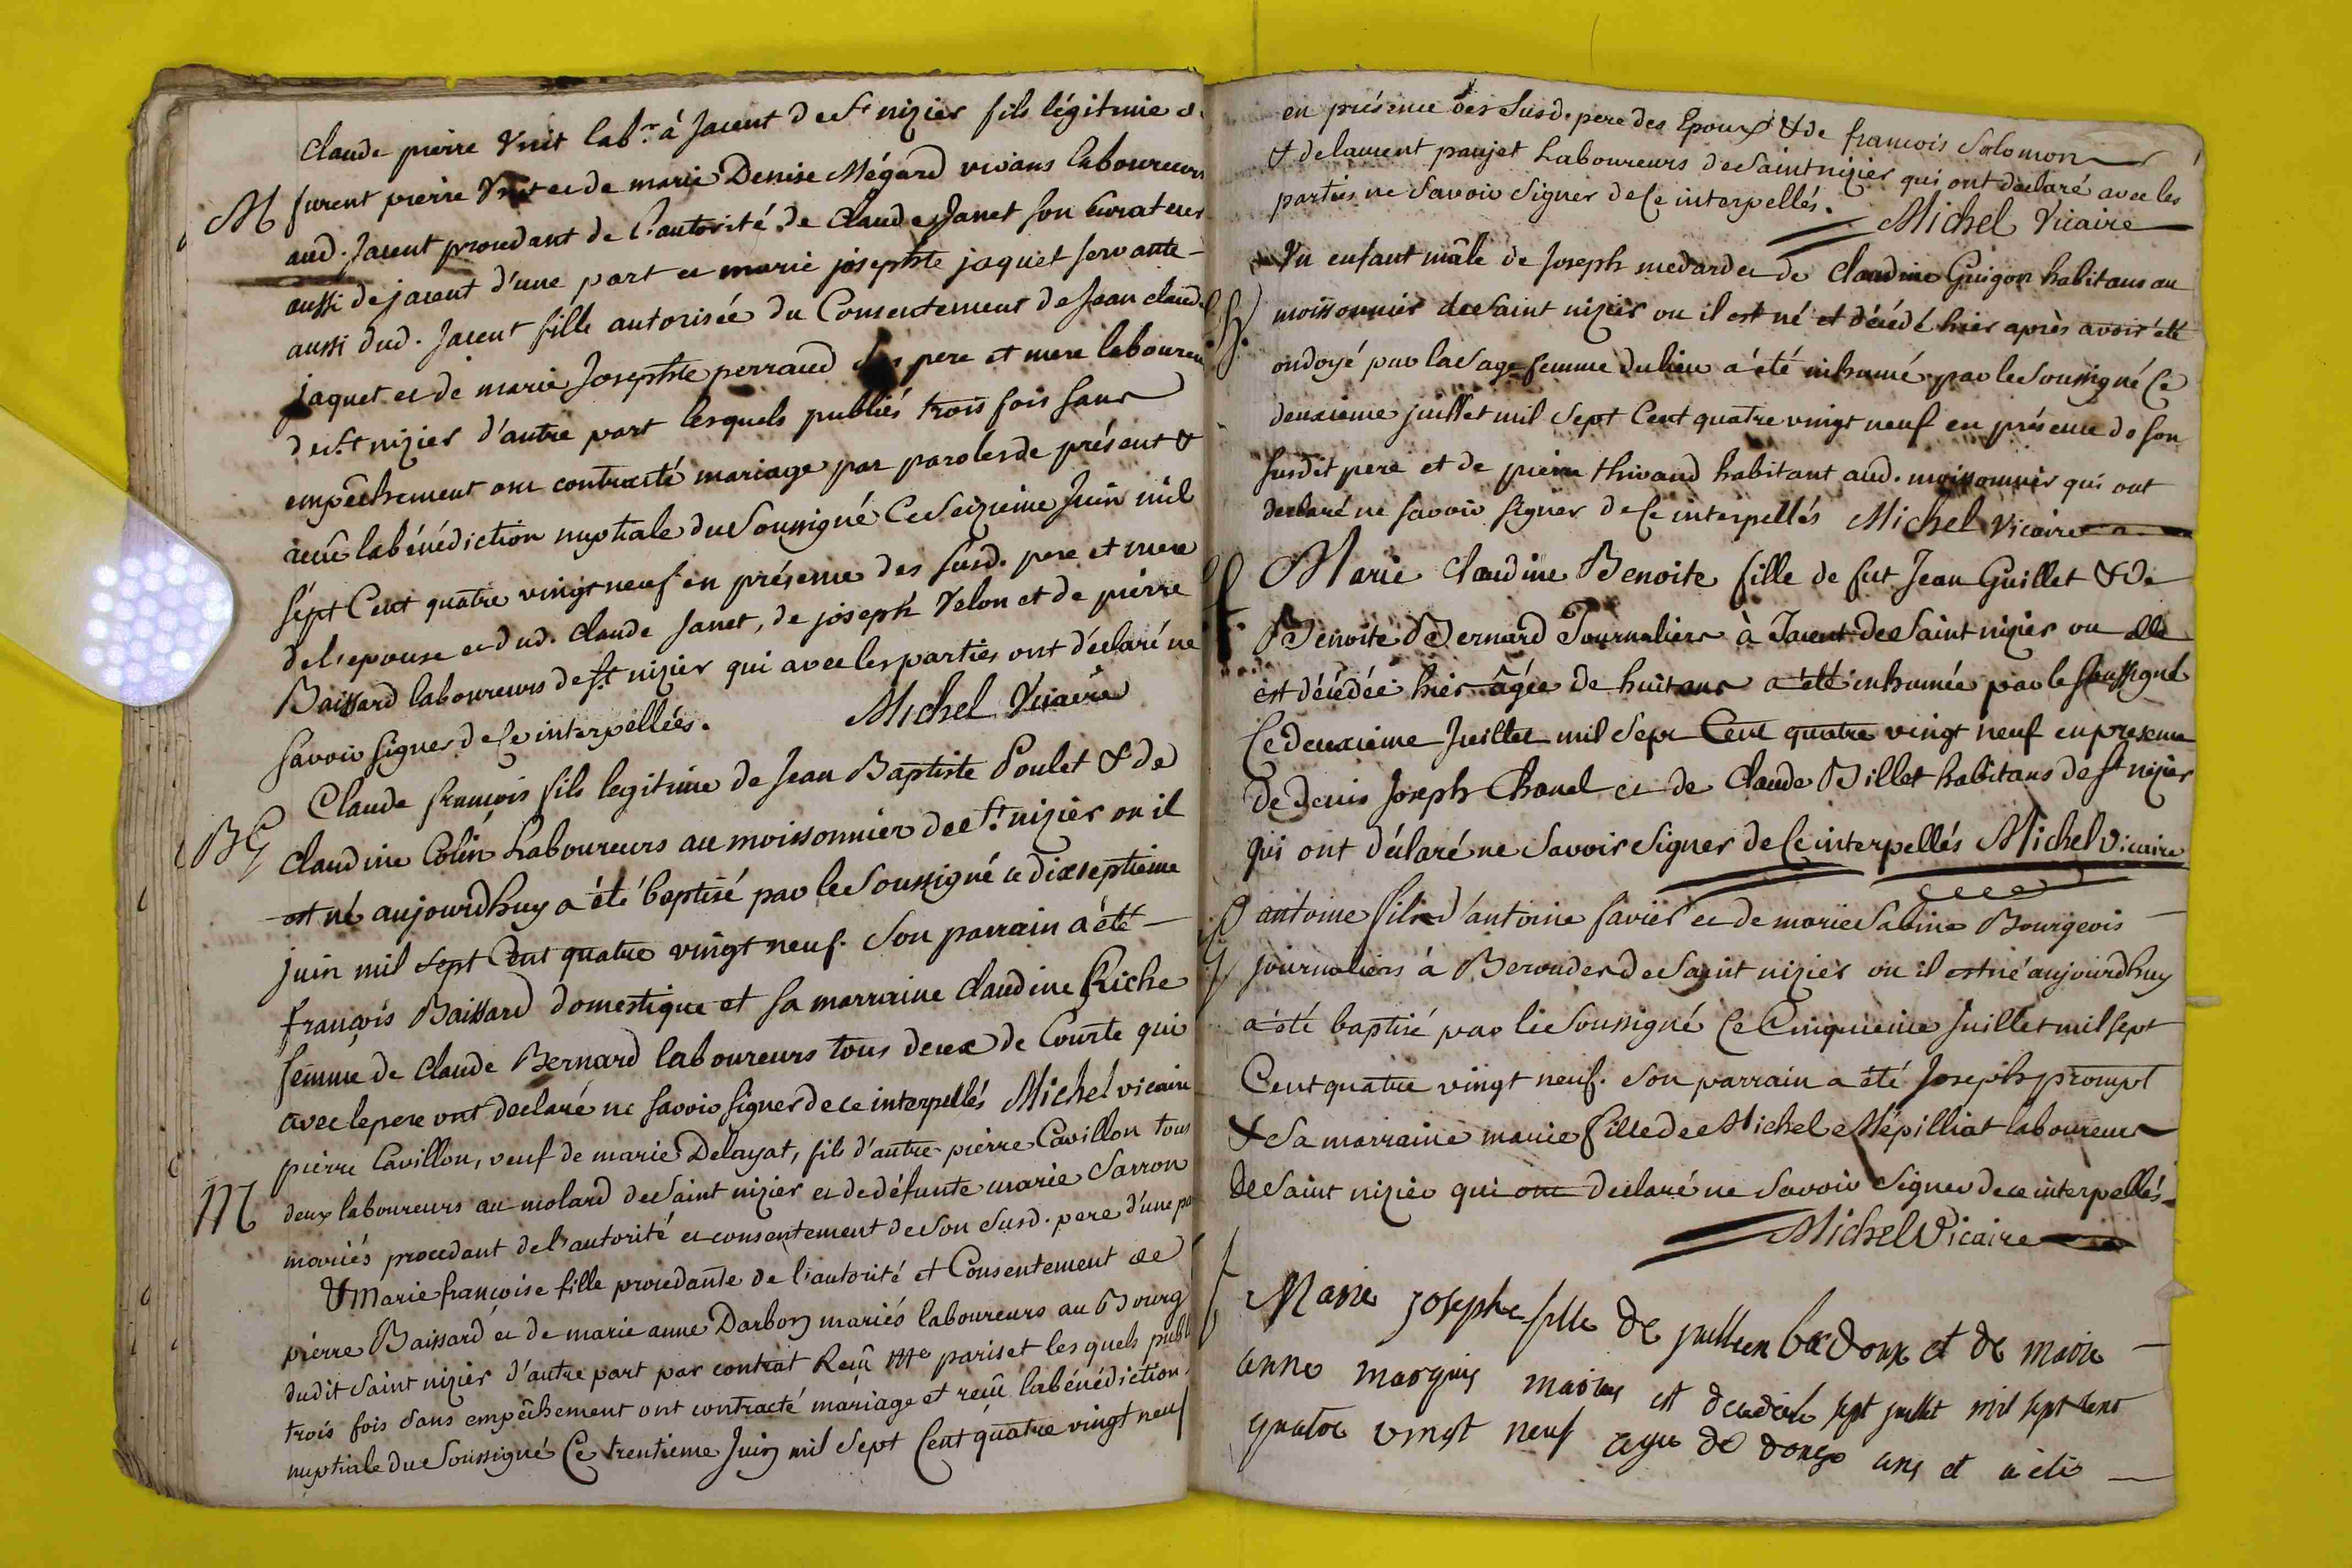 Claude pierre Vuit labr. à Jacent de St nizier fils légitime de
M furent pierre Vuit et de marie Denise Mégard vivans laboureurs
aud. Jacent procedant de l'autorité de Claude Janet son Curateur
aussi de jacent d'une part et marie josephte jaquet servante
aussi dud. Jacent fille autorisée du Consentement de Jean claude
jaquet et de marie Josephte perraud ses pere et mere laboureurs
de St nizier d'autre part lesquels publiés trois fois sans
empêchement ont contracté mariage par paroles de présent &
recû la bénédiction nuptiale du Soussigné Ce Seizieme Juin mil
sept Cent quatre vingt neuf en présence des susd. pere et mere
de l'epouse et dud. Claude Janet, de joseph Velon et de pierre
Baissard laboureurs de St nizier qui avec les parties ont déclaré ne
savoir signer de Ce interpellées. Michel Vicaire
Claude françois fils legitime de Jean Baptiste Poulet & de
BG Claudine Colin Laboureurs au moissonnier de St. nizier ou il
est né aujourdhuy a été baptisé par le Soussigné ce dixseptieme
juin mil sept Cent quatre vingt neuf. Son parrain a été
françois Baissard domestique et sa marraine Claudine Riche
femme de Claude Bernard laboureurs tous deux de Courte qui
avec le pere ont declaré ne savoir signer de ce interpellés Michel vicaire
pierre Cavillon, veuf de marie Delayat, fils d'autre pierre Cavillon tous
M deux laboureurs au molard de Saint nizier et de défunte marie Sarron
mariés procedant de l'autorité et consentement de Son Susd. pere d'une part
& Marie françoise fille procedante de l'autorité et Consentement de
pierre Baissard et de marie anne Darbon mariés laboureurs au Bourg
dudit Saint nizier d'autre part par contrat Recû Me pariset les quels publiés
trois fois Sans empêchement ont contracté mariage et recû la bénédiction
nuptiale du Soussigné Ce trentieme Juin mil Sept Cent quatre vingt neuf
en présence des Susd. pere des Epoux & de francois Solomon
& de laurent paujet Laboureurs de Saint nizier qui ont declaré avec les
parties ne Savoir Signer de Ce interpellés. Michel Vicaire
Un enfant mâle de Joseph medard et de Claudine Guigon habitans au
moissonnier de Saint nizier ou il est né et décédé hier après avoir été
ondoyé par la Sage femme du lieu a été inhumé par le Soussigné Ce
deuxieme juillet mil Sept Cent quatre vingt neuf en présence de son
susdit pere et de pierre thivaud habitant aud. moissonnier qui ont
declaré ne savoir signer de Ce interpellés Michel Vicaire
Marie Claudine Benoite fille de fut Jean Guillet & de
Benoite Bernard Journaliers à Jacent de Saint nizier ou elle
est décédée hier âgée de huit ans a été inhumée par le soussigné
Ce deuxieme Juillet mil Sept Cent quatre vingt neuf en presence
de Denis Joseph Chanel et de Claude Billet habitans de St nizier
qui ont déclaré ne Savoir Signer de Ce interpellés Michel Vicaire
antoine fils d'antoine favier et de marie Sabine Bourgeois
journaliers à Berouder de Saint nizier ou il est né aujourdhuy
a été baptisé par le Soussigné Ce Cinquieme Juillet mil sept
Cent quatre vingt neuf. Son parrain a été Joseph prompt
& Sa marraine marie fille de Michel Mépilliat laboureurs
de Saint nizier qui ont declaré ne Savoir Signer de ce interpellés
Michel Vicaire
Marie josephe fille de jullien bardoux et de marie
anne marguis maries est decedée le sept juillet mil sept cent
quatre vingt neuf agee de donze ans et a été